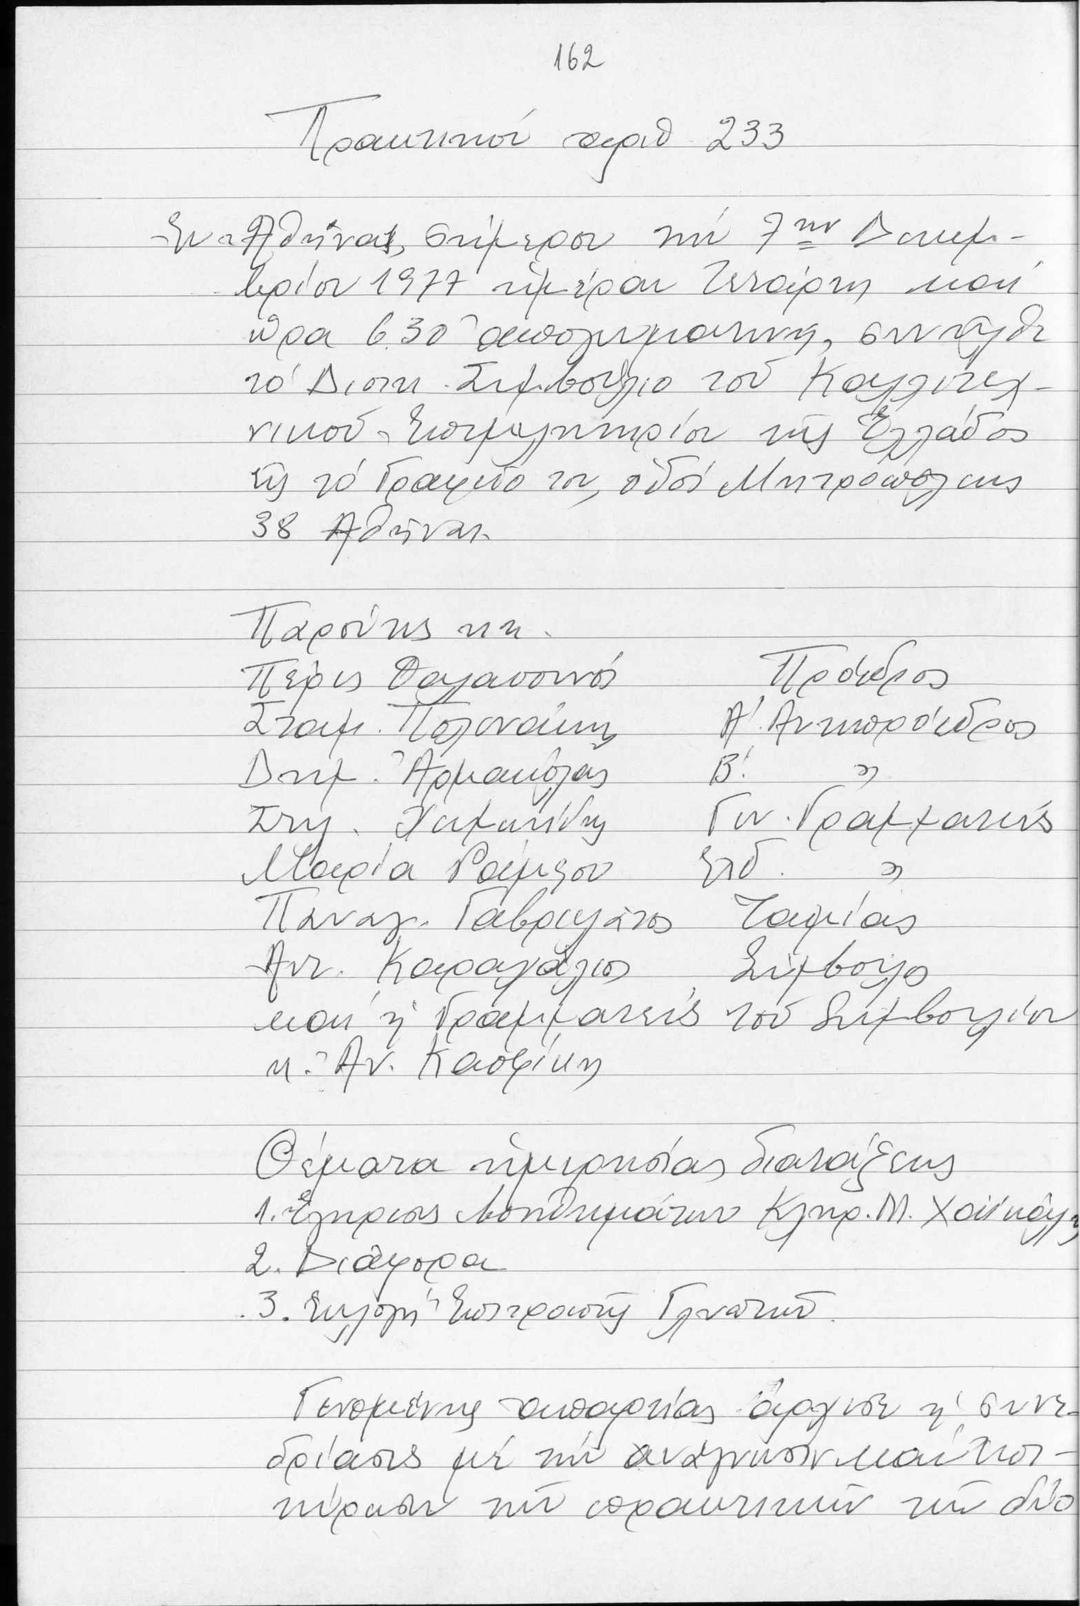 162
Πρακτικόν αριθ 233
Ἐν Ἀθήναις, σήμερον τήν 7ην Δεκεμ-
βρίου 1977 ἡμέραν Τετάρτη καί
ὥρα 6.30 ἀπογευματινή, συνῆλθε
τό Διοικ. Συμβούλιο τοῦ Καλλιτεχ-
νικοῦ Ἐπιμελητηρίου τῆς Ἑλλάδος
εἰς τό Γραφεῖο του, ὁδός Μητροπόλεως
38 Ἀθῆναι.
Παρόντες κ.κ.
Πέρις Θαλασσινός Πρόεδρος
Σταμ. Πολενάκης Α΄. Αντιπρόεδρος
Δημ. Ἀρμακόλας Β΄. "
Στυλ. Γεν. Γραμματεύς
Μαρία Ράμφου Εἰδ. "
Παναγ. Γαβριηλάτος Ταμίας
Αντ. Καραγάλιος Σύμβουλος
καί ἡ Γραμματεύς τοῦ Συμβουλίου
κ. Ἀν. Κασφίκη
Θέματα ἡμερησίας διατάξεως
1. Ἔγκρισις βοηθημάτων Κληρ. Μ.
2. Διάφορα
3. Ἐκλογή Ἐπιτροπῆς Γλυπτῶν.
Γενομένης ἀπαρτίας ἄρχισε ἡ συνε-
δρίασις μέ τήν ἀνάγνωσιν καί ἐπι-
κύρωσιν τῶν πρακτικῶν τῶν δύο